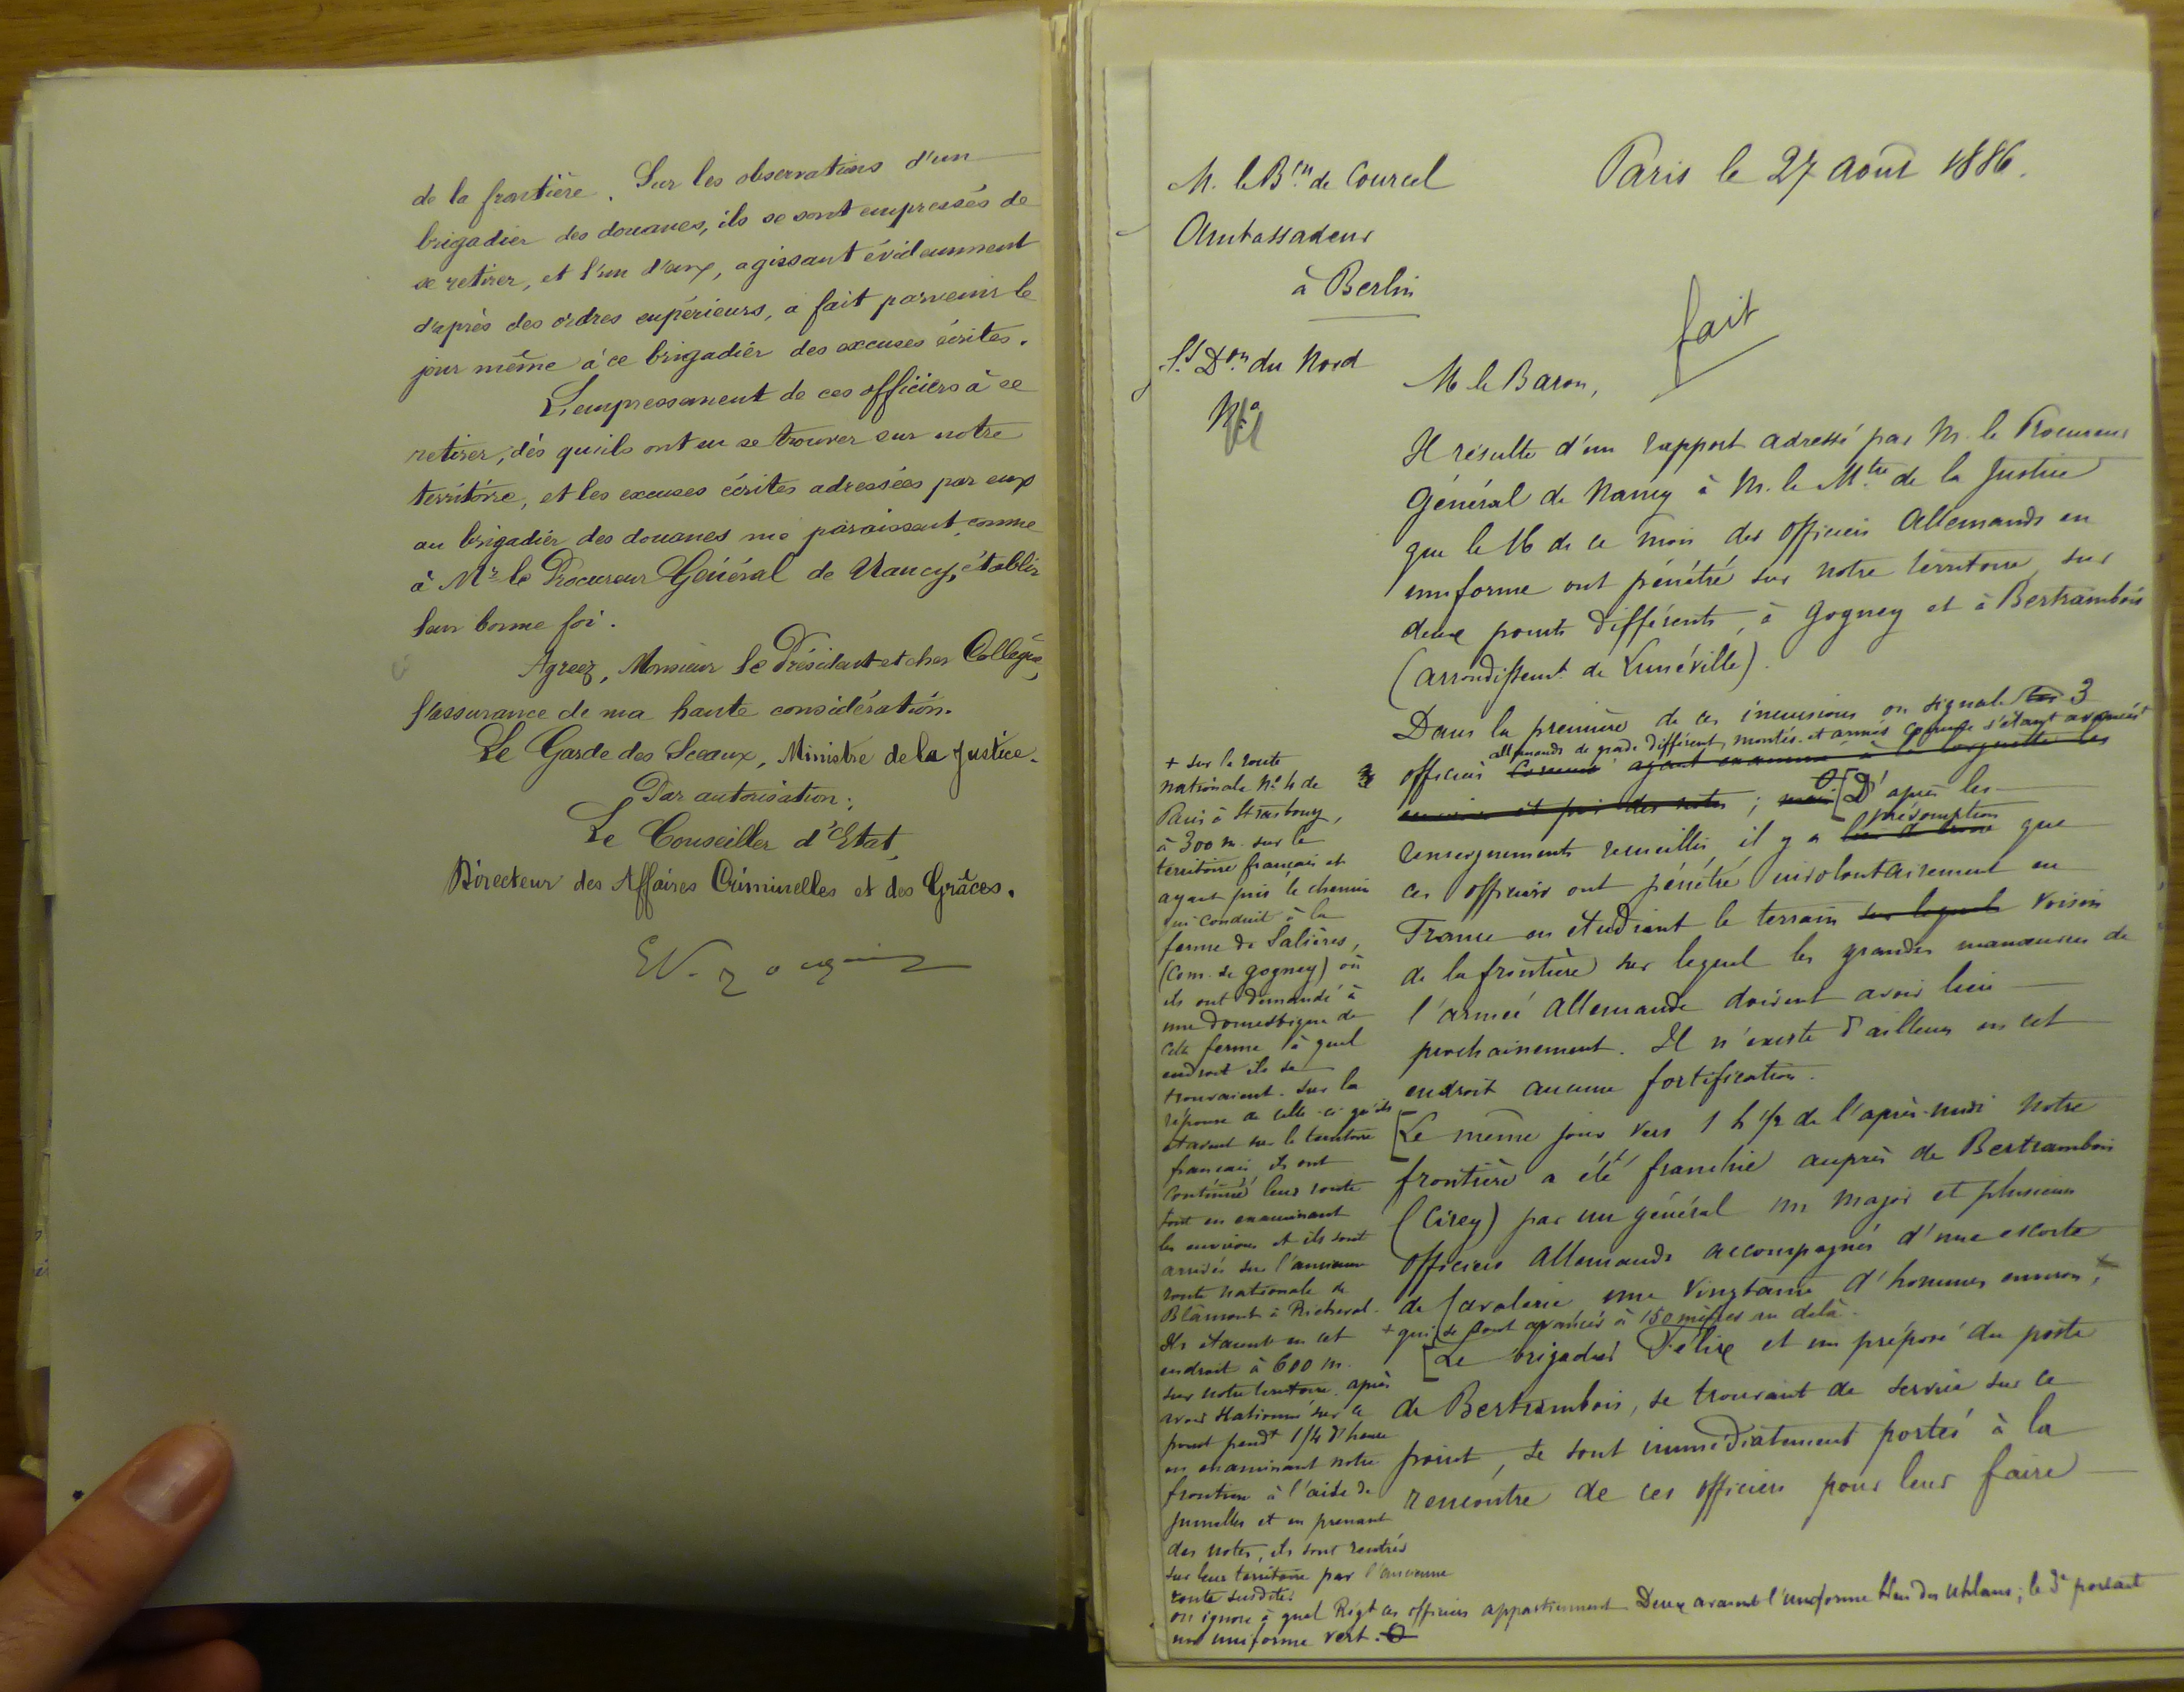 de la frontière. Sur les observations d'un
brigadier des douanes, ils se sont empressés de
se retirer, et l'un d'eux, agissant évidemment
d'après des ordres supérieurs, a fait parvenir le
jour même à ce brigadier des excuses écrites.
L'empressement de ces officiers à se
retirer, dès qu'ils ont su se trouver sur notre
territoire, et les excuses écrites adressées par eux
au brigadier des douanes me paraissent, comme
à Mr le Procureur Général de Nancy, établir
leur bonne foi.
Agréez, Monsieur le Président et cher Collègue,
l'assurance de ma haute considération.
Le Garde des Sceaux, Ministre de la Justice.
Par autorisation:
Le Conseiller d'Etat,
Directeur des Affaires Criminelles et des Grâces.
M. le Bon de Courcel
Ambassadeur
à Berlin
Paris le 27 août 1886.
fait
S/ Don du Nord
No
M le Baron,
Il résulte d'un rapport adressé par M. le Procureur
Général de Nancy à M. le Mtre de la Justice
que le 16 de ce mois des officiers allemands en
uniforme ont pénétré sur notre territoire, sur
deux points différents, à Gogney et à Bertrambois
(arrondissemt de Lunéville).
Dans la première de ces incursions on signale 3
allemands de grade différent, montés et armés s'étant avancés
officiers ayant examiné à la lorgnette les
environs et pris des notes; mais [D'après les
présomption
renseignements recueillis il y a lieu de croire que
ces officiers ont pénétré involontairement en
France en étudiant le terrain sur lequel voisin
de la frontière sur lequel les grandes manœuvres de
l'armée allemande doivent avoir lieu
prochainement. Il n'existe d'ailleurs en cet
endroit aucune fortification.
[Le même jour vers 1 h 1/2 de l'après-midi notre
frontière a été franchie auprès de Bertrambois
(Cirey) par un général un major et plusieurs
officiers allemands accompagnés d'une escorte
de cavalerie une vingtaine d'hommes environ, +
+ qui se sont avancés à 150 mètres au delà.
[Le brigadier Délixe et un préposé du poste
de Bertrambois, se trouvant de service sur ce
point, se sont immédiatement portés à la
rencontre de ces officiers pour leur faire
+ sur la route
nationale No 4 de
Paris à Strasbourg,
à 300 m. sur le
territoire français et
ayant pris le chemin
qui conduit à la
ferme de Salières,
(Com. de Gogney) où
ils ont demandé à
une domestique de
cette ferme à quel
endroit ils se
trouvaient. Sur la
réponse de celle-ci qu'ils
étaient sur le territoire
français, ils ont
continué leur route
tout en examinant
les environs et ils sont
arrivés sur l'ancienne
route nationale de
Blâmont à Richeval.
Ils étaient en cet
endroit à 600 m.
sur notre territoire. après
avoir stationné sur ce
point pendt 1/4 d'heure
en examinant notre
frontière à l'aide de
jumelles et en prenant
des notes, ils sont rentrés
sur leur territoire par l'ancienne
route susdite.
on ignore à quel Régt ces officiers appartiennent. Deux avaient l'uniforme bleu des Uhlans; le 3e portait
un uniforme vert.